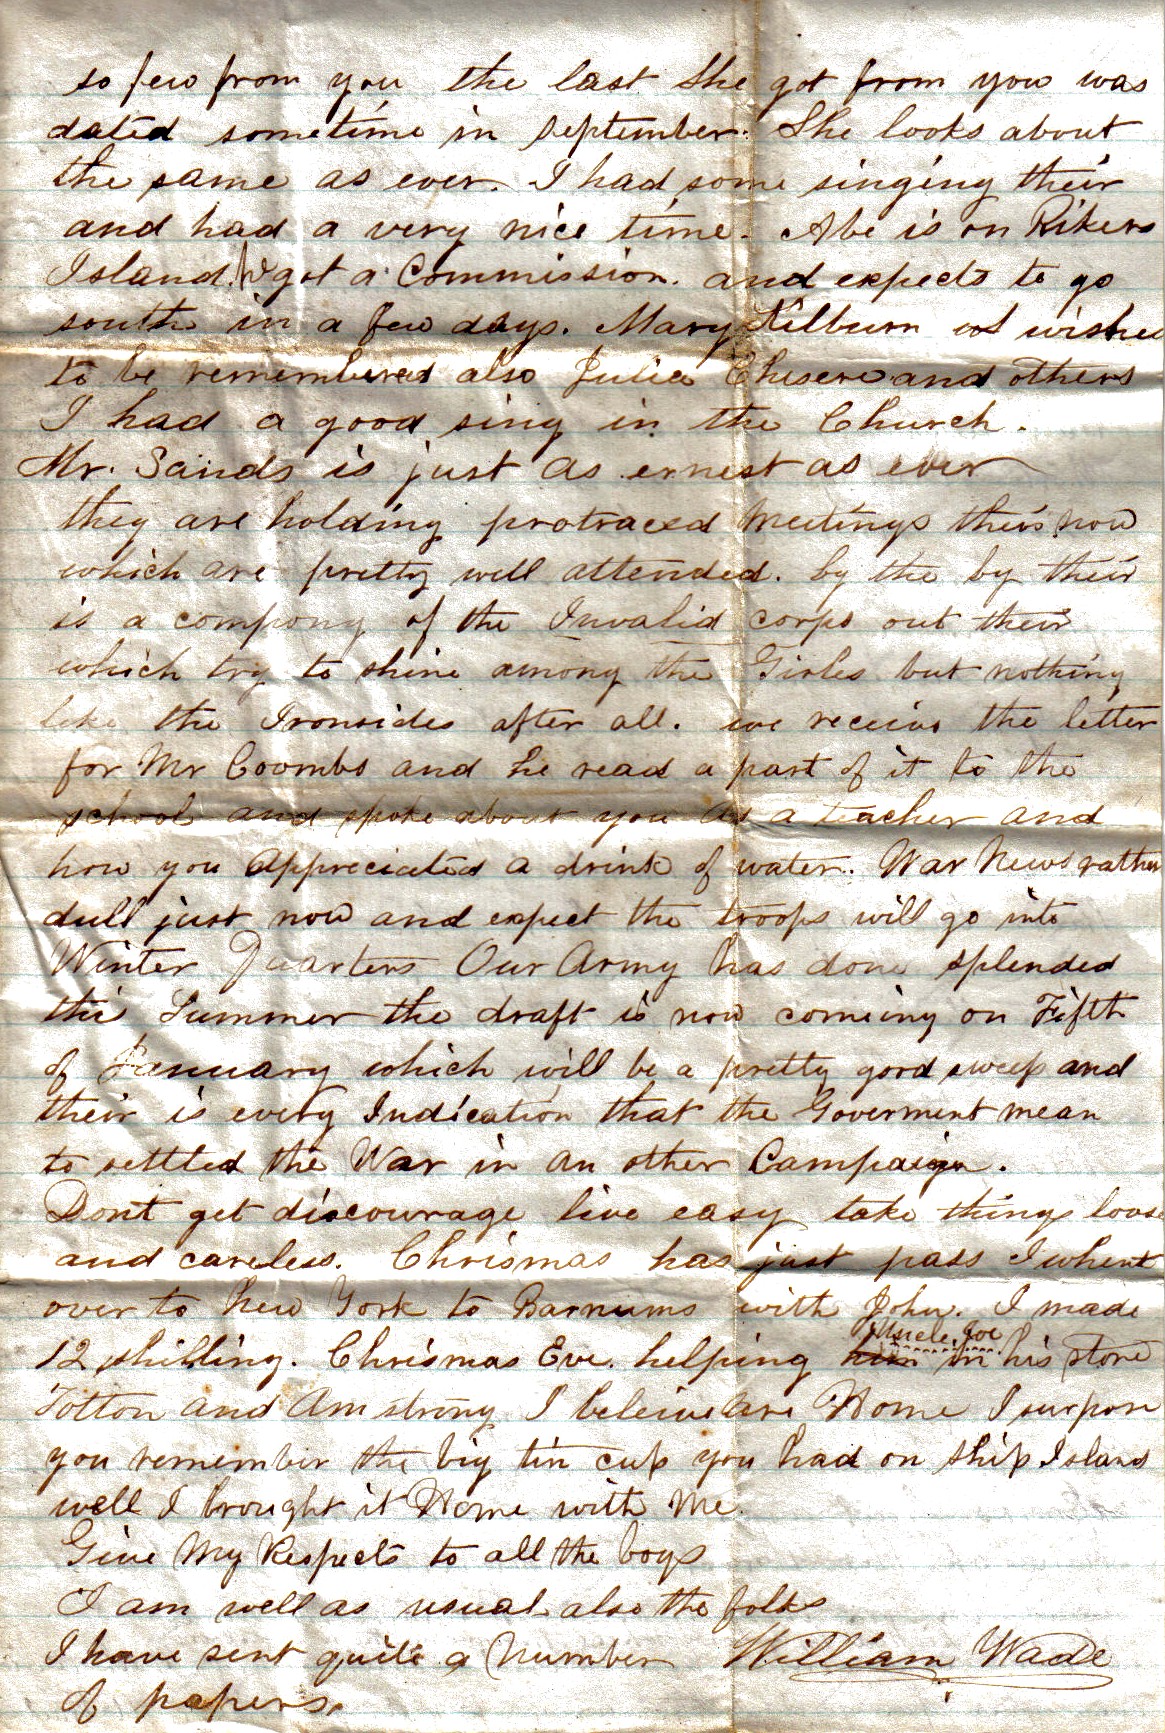 so few from you the last she got from you was
dated sometime in September. She looks about
the same as ever. I had some singing their
and had a very nice time. Abe is on Rikers
Island. got a Commission. and expects to go
south in a few days. Mary Kilburn wishes
to be remembered also Julia and others
I had a good sing in the Church.
Mr. Sands is just as ernest as ever
they are holding protraced Meetings their now
which are pretty well attended. by the by their
is a compony of the Invalid corps out their
which try to shine among the Girles but nothing
like the Ironsides after all. we receive the letter
for Mr Coombs and he read a part of it to the
school and spoke about you as a teacher and
how you appreciated a drink of water. War News rather
dull just now and expect the troops will go into
Winter Quarters Our Army has done splended
this Summer the draft is now comeing on Fifth
of January which will be a pretty good sweep and
their is every Indication that the Goverment mean
to settled the War in an other Campaign.
Dont get discourage live easy take things loose
and careless. Chrismas has just pass I whent
over to New York to Barnums with John. I made
12 shilling. Chrismas Eve. helping Uncle Joe in his store
Totton and Amstrong I beleive are Home I surpose
you remember the big tin cup you had on Ship Island
well I brought it Home with Me.
Give My Respects to all the boys
I am well as usual also the folks
I have sent quite a Number William Wade
of papers.